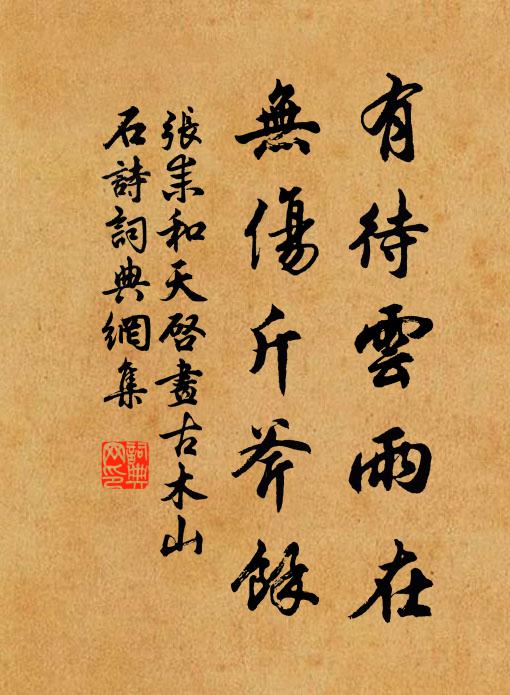 有待雲雨在
無傷斤斧餘
張耒和天啓畫古木山
石詩詞典網集
詞典
网印